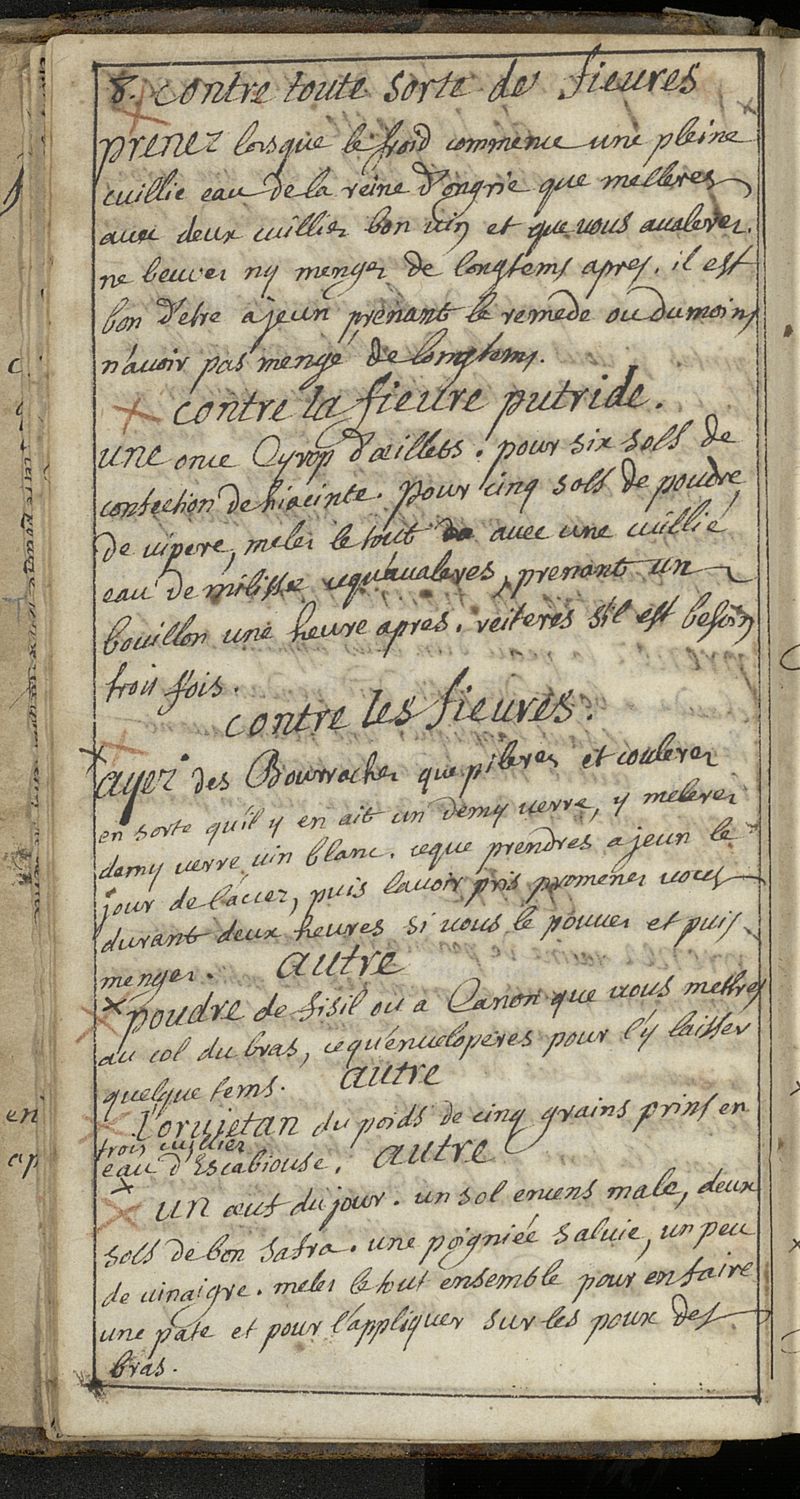 8. contre toute sorte de fieures
prenez lorsque le froid commence une pleine
cuillié eau de la reine d'ongrie que melleres
auec deux cuillies bon uin et que uous aualerez.
ne beuuez ny menges de longtems apres. il est
bon d'etre a jeun prenant le remede ou du moins
n'auoir pas mengé de longtems.
contre la fieure putride.
une once Cyrop d'œillets. pour six sols de
confection de hiacinte. pour cinq sols de poudre
de uipere, meles le tout avec une cuillié
eau de milisse cequ'aualeres, prenant un
bouillon une heure apres. reiteres s'il est besoin
trois fois.
contre les fieures.
ayez des Bourraches que pileres et couleres
en sorte qu'il y en ait un demy uerre, y meleres
demy uerre uin blanc. ceque prendres a jeun le
jour de l'accez, puis l'auoir pris promenes vous
durant deux heures si uous le pouues et puis
menges. autre
poudre de fisil ou a Canon que uous mettres
au col du bras, cequ'enueloperes pour l'y laisser
quelque tems. autre
l'orujetan du poids de cinq grains prins en
trois cuillier
eau d'Escabiouse. autre
un œuf du jour. un sol encens male, deux
sols de bon safra. une poigniée saluie, un peu
de uinaigre. meles le tout ensemble pour en faire
une pate et pour l'appliquer sur les poux des
bras.